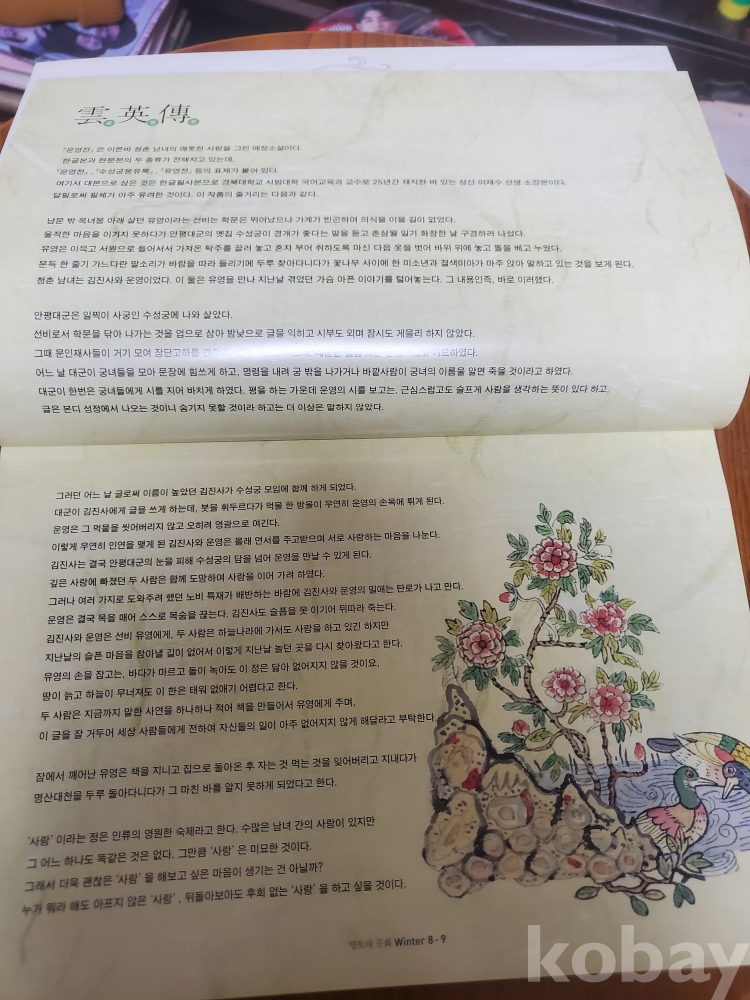 雲英傳
『운영전』은 이른바 청춘 남녀의 애틋한 사랑을 그린 애정소설이다.
한글본과 한문본의 두 종류가 전해지고 있는데,
『운영전』, 『수성궁몽유록』, 『유영전』 등의 표제가 붙어 있다.
여기서 대본으로 삼은 것은 한글필사본으로 경북대학교 사범대학 국어교육과 교수로 25년간 재직한 바 있는 삼산 이재수 선생 소장본이다.
달필로써 필체가 아주 유려한 것이다. 이 작품의 줄거리는 다음과 같다.
남문 밖 옥녀봉 아래 살던 유영이라는 선비는 학문은 뛰어났으나 가계가 빈곤하여 의식을 이을 길이 없었다.
울적한 마음을 이기지 못하다가 안평대군의 옛집 수성궁이 경개가 좋다는 말을 듣고 춘삼월 일기 화창한 날 구경하러 나섰다.
유영은 이윽고 서원으로 들어서서 가져온 탁주를 끌러 놓고 혼자 부어 취하도록 마신 다음 옷을 벗어 바위 위에 놓고 돌을 베고 누웠다.
문득 한 줄기 가느다란 말소리가 바람을 따라 들리기에 두루 찾아다니다가 꽃나무 사이에 한 미소년과 절색미아가 마주 앉아 말하고 있는 것을 보게 된다.
청춘 남녀는 김진사와 운영이었다. 이 둘은 유영을 만나 지난날 겪었던 가슴 아픈 이야기를 털어놓는다. 그 내용인즉, 바로 이러했다.
안평대군은 일찍이 사궁인 수성궁에 나와 살았다.
선비로서 학문을 닦아 나가는 것을 업으로 삼아 밤낮으로 글을 익히고 시부도 외며 잠시도 게을리 하지 않았다.
그때 문인재사들이 거기 모여 장단고하를 기묘하였다.
어느 날 대군이 궁녀들을 모아 문장에 힘쓰게 하고, 명령을 내려 궁 밖을 나가거나 바깥사람이 궁녀의 이름을 알면 죽을 것이라고 하였다.
대군이 한번은 궁녀들에게 시를 지어 바치게 하였다. 평을 하는 가운데 운영의 시를 보고는, 근심스럽고도 슬프게 사람을 생각하는 뜻이 있다 하고,
글은 본디 성정에서 나오는 것이니 숨기지 못할 것이라 하고는 더 이상은 말하지 않았다.
그러던 어느 날 글로써 이름이 높았던 김진사가 수성궁 모임에 함께 하게 되었다.
대군이 김진사에게 글을 쓰게 하는데, 붓을 휘두르다가 먹물 한 방울이 우연히 운영의 손목에 튀게 된다.
운영은 그 먹물을 씻어버리지 않고 오히려 영광으로 여긴다.
이렇게 우연히 인연을 맺게 된 김진사와 운영은 몰래 연서를 주고받으며 서로 사랑하는 마음을 나눈다.
김진사는 결국 안평대군의 눈을 피해 수성궁의 담을 넘어 운영을 만날 수 있게 된다.
깊은 사랑에 빠졌던 두 사람은 함께 도망하여 사랑을 이어 가려 하였다.
그러나 여러 가지로 도와주려 했던 노비 특재가 배반하는 바람에 김진사와 운영의 밀애는 탄로가 나고 만다.
운영은 결국 목을 매어 스스로 목숨을 끊는다. 김진사도 슬픔을 못 이기어 뒤따라 죽는다.
김진사와 운영은 선비 유영에게, 두 사람은 하늘나라에 가서도 사랑을 하고 있긴 하지만
지난날의 슬픈 마음을 참아낼 길이 없어서 이렇게 지난날 놀던 곳을 다시 찾아왔다고 한다.
유영의 손을 잡고는, 바다가 마르고 돌이 녹아도 이 정은 닳아 없어지지 않을 것이요,
땅이 늙고 하늘이 무너져도 이 한은 태워 없애기 어렵다고 한다.
두 사람은 지금까지 말한 사연을 하나하나 적어 책을 만들어서 유영에게 주며,
이 글을 잘 거두어 세상 사람들에게 전하여 자신들의 일이 아주 없어지지 않게 해달라고 부탁한다.
잠에서 깨어난 유영은 책을 지니고 집으로 돌아온 후 자는 것 먹는 것을 잊어버리고 지내다가
명산대천을 두루 돌아다니다가 그 마친 바를 알지 못하게 되었다고 한다.
'사랑' 이라는 정은 인류의 영원한 숙제라고 한다. 수많은 남녀 간의 사람이 있지만
그 어느 하나도 똑같은 것은 없다. 그만큼 '사랑' 은 미묘한 것이다.
그래서 더욱 괜찮은 '사랑' 을 해보고 싶은 마음이 생기는 건 아닐까?
누가 뭐라 해도 아프지 않은 '사랑', 뒤돌아보아도 후회 없는 '사랑' 을 하고 싶을 것이다.
향토와 문화 Winter 8 · 9
kobay